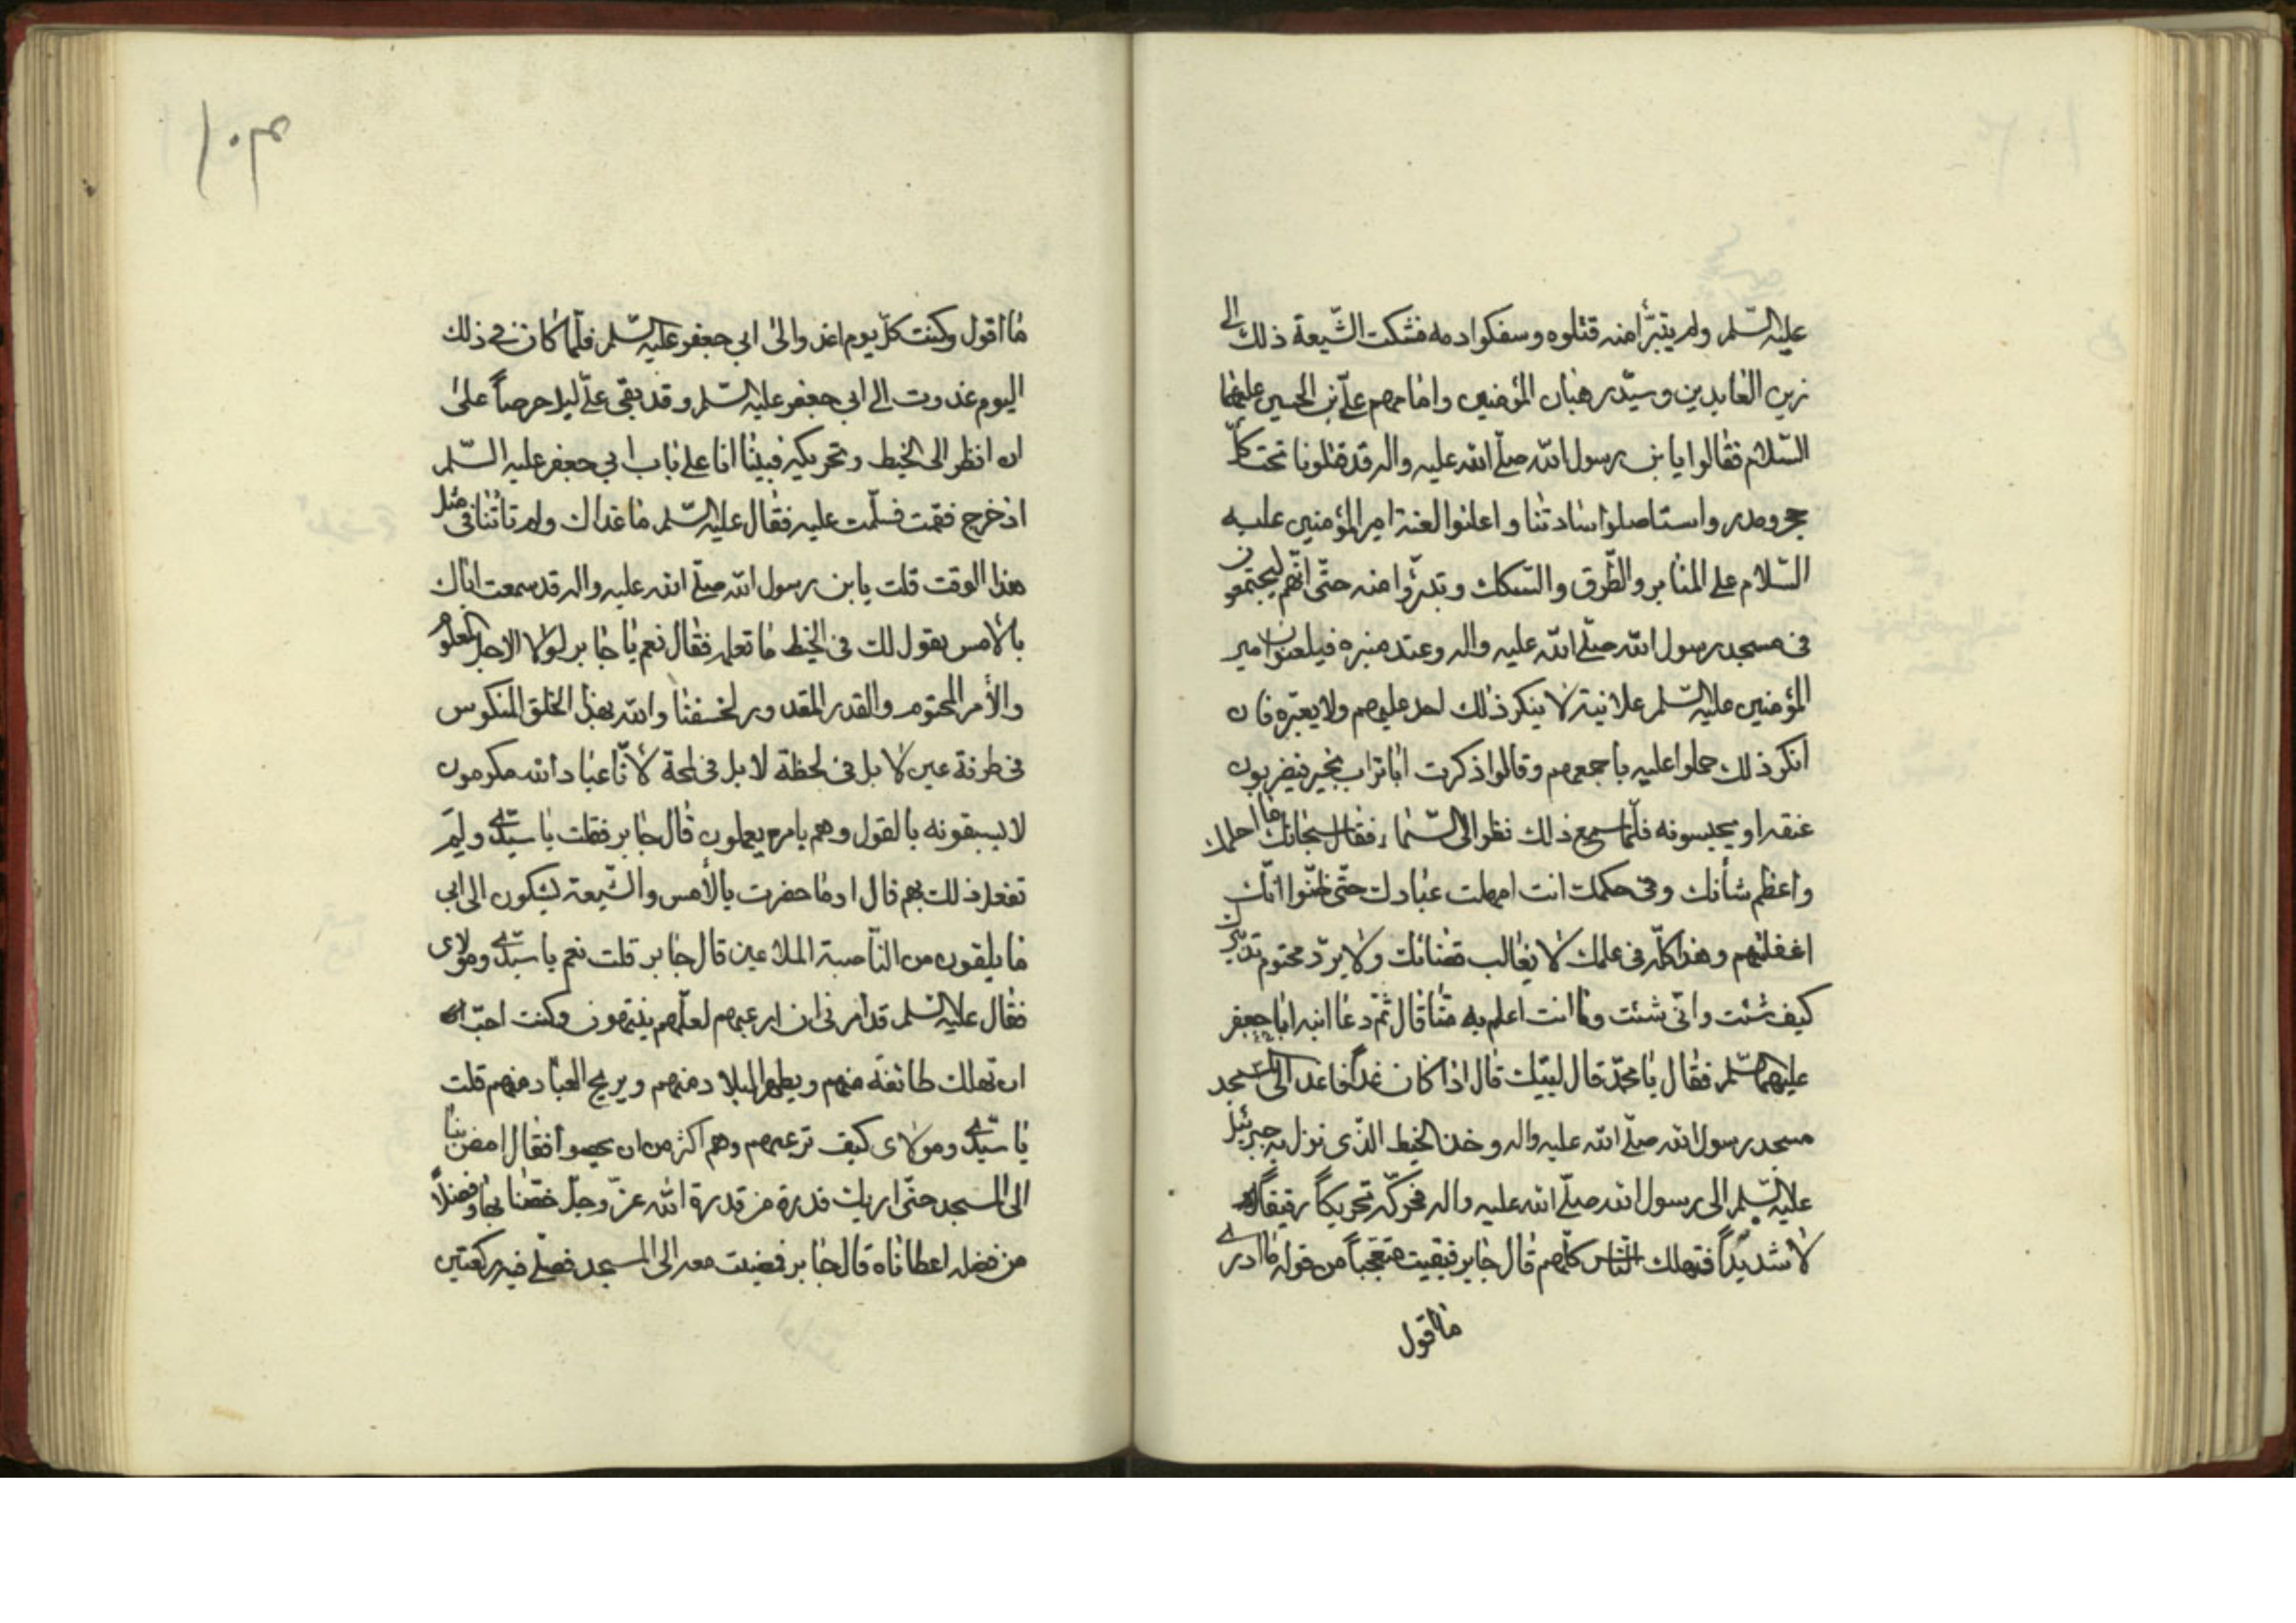 عليه السّلم ولم يتبرّأ منه قتلوه وسفكوا دمه فشكت الشّيعة ذلك الى
زين العابدين وسيّد رهبان المؤمنين وامامهم علىّ بن الحسين عليهما
السّلام فقالوا يا بن رسول الله صلّى الله عليه واله قد قتلونا تحت كلّ
حجر ومدر واستاصلوا شادتنا واعلنوا لعنة امير المؤمنين عليه
السّلام على المنابر والطّرق والسّكك وتبرّؤا منه حتّى انّهم ليجتمعون
فى مسجد رسول الله صلّى الله عليه واله وعند منبره فيلعنون امير
المؤمنين عليه السّلم علانية لا ينكر ذلك احد عليهم ولا يعيّره فان
انكر ذلك حملوا عليه باجمعهم وقالوا ذكرت ابا تراب بخير فيضربون
عنقه او يحبسونه فلمّا سمع ذلك نظر الى السّماء فقال سبحانك ما احلمك
واعظم شأنك وفى حكمك انت امهلت عبادك حتّى ظنّوا انّك
اغفلتهم وهذا كلّه فى علمك لا يغالب قضائك ولا يردّ محتوم تدبيرك
كيف شئت وانّى شئت وما انت اعلم به منّا قال ثمّ دعا ابنه ابا جعفر
عليهما السّلم فقال يا محمّد قال لبّيك قال اذا كان غداً فاغد الى المسجد
مسجد رسول الله صلّى الله عليه واله وخذ الخيط الذّى نزل به جبرئيل
عليه السّلم الى رسول الله صلّى الله عليه واله فحرّكه تحريكاً رقيقاً
لا شديداً فتهلك النّاس كلّهم قال جابر فبقيت متعجّباً من قوله ما ادرى
ما اقول
١٠٣
ما اقول وكنت كلّ يوم اغدوا الى ابى جعفر عليه السّلم فلمّا كان فى ذلك
اليوم غدوت الى ابى جعفر عليه السّلم وقد بقى علىّ ليل حرصاً على
ان انظر الى الخيط وتحريكه فبينا انا على باب ابى جعفر عليه السّلم
اذ خرج فقمت فسلّمت عليه فقال عليه السّلم ما غداك ولم تاتنا فى مثل
هذا الوقت قلت يا بن رسول الله صلّى الله عليه واله قد سمعت اباك
بالأمس يقول لك فى الخيط ما تعلم فقال نعم يا جابر لولا الاجل المعلوم
والأمر المحتوم والقدر المقدور لخسفنا والله بهذا الخلق المنكوس
فى طرفة عين لا بل فى لحظة لا بل فى لمحة لأنّا عباد الله مكرمون
لا يسبقونه بالقول وهم بامره يعملون قال جابر فقلت يا سيّدى ولِمَ
تفعل ذلك بهم قال او ما حضرت بالأمس والشّيعة يشكون الى ابى
ما يلقون من النّاصبة الملاعين قال جابر قلت نعم يا سيّدى ومولاى
فقال عليه السّلم قد امرنى ان ارعبهم لعلّهم ينتهون وكنت احبّ
ان تهلك طائفة منهم ويطهر البلاد منهم ويريح العباد منهم قلت
يا سيّدى ومولاى كيف ترعبهم وهم اكثر من ان يحصوا فقال امض بنا
الى المسجد حتّى اريك قدرة من قدرة الله عزّ وجلّ خصّنا بها وفضلاً
من فضله اعطاناه قال جابر فمضيت معه الى المسجد فصلّى فيه ركعتين